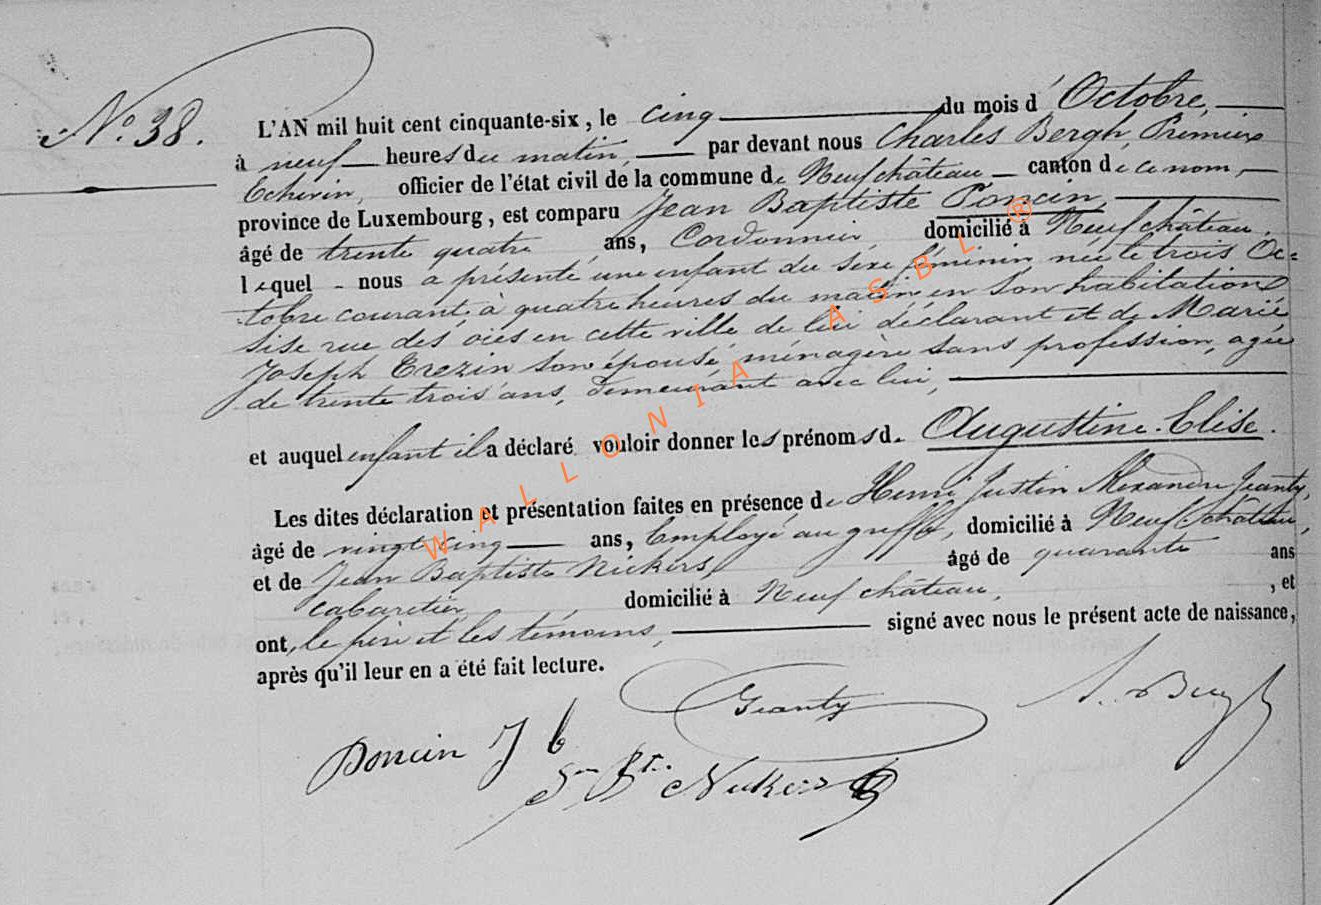 N° 38.
L'AN mil huit cent cinquante-six, le cinq du mois d'Octobre,
à neuf heures du matin, par devant nous Charles Bergh, Premier
Echevin, officier de l'état civil de la commune de Neufchâteau canton de ce nom,
province de Luxembourg, est comparu Jean Baptiste Poncin,
âgé de trente quatre ans, Cordonnier, domicilié à Neufchâteau.
lequel nous a présenté une enfant du sexe féminin née le trois Oc=
tobre courant, à quatre heures du matin, en son habitation
sise rue des oies en cette ville de lui déclarant et de Marie
Joseph Trezin son épouse, ménagère sans profession, agée
de trente trois ans, demeurant avec lui,
et auquel enfant il a déclaré vouloir donner les prénoms de Augustine Elise.
Les dites déclaration et présentation faites en présence de Henri Justin Alexandre Jeanty,
âgé de vingt cinq ans, Employé au greffe, domicilié à Neufchâteau,
et de Jean Baptiste Nickers, âgé de quarante ans
cabaretier, domicilié à Neufchâteau, , et
ont, le père et les témoins, signé avec nous le présent acte de naissance,
après qu'il leur en a été fait lecture.
Jeanty
Poncin J b
Bt. Nickers
WALLONIA ASBL ®